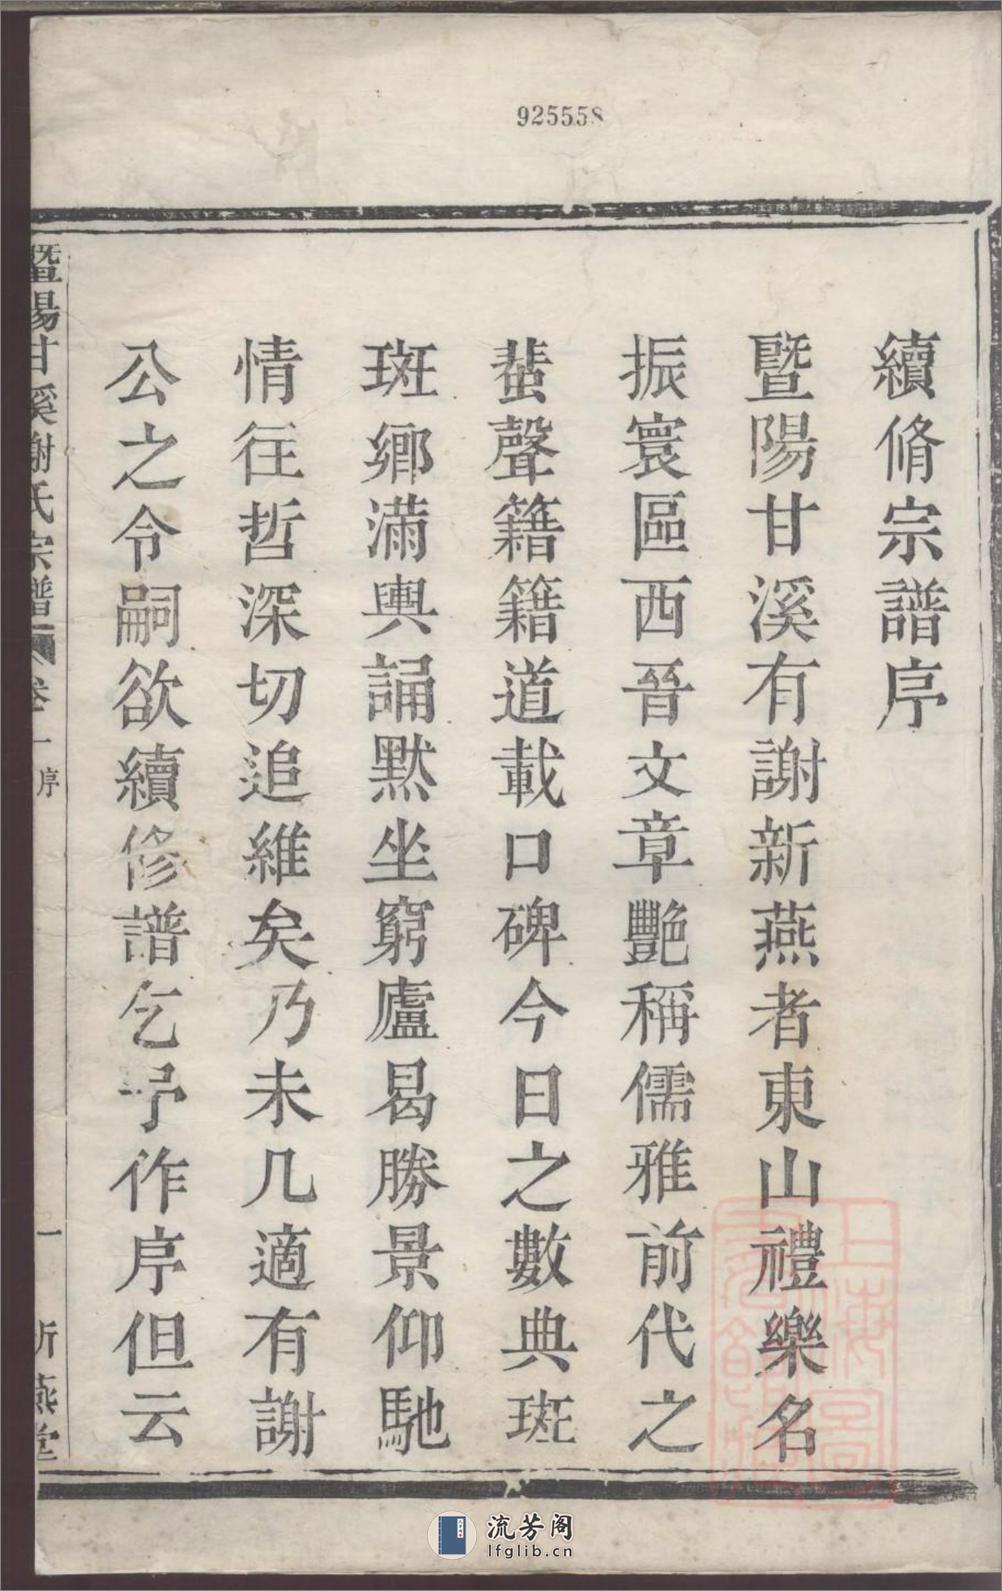 925558
續脩宗譜序
暨陽甘溪有謝新燕者東山禮樂名
振寰區西晉文章艷稱儒雅前代之
蜚聲籍籍道載口碑今日之數典斑
斑鄉滿輿誦默坐窮廬曷勝景仰馳
情往哲深切追維矣乃未几適有謝
公之令嗣欲續修譜乞予作序但云
暨陽甘溪謝氏宗譜 卷一 序 一 新燕堂
流芳阁
lfglib.cn